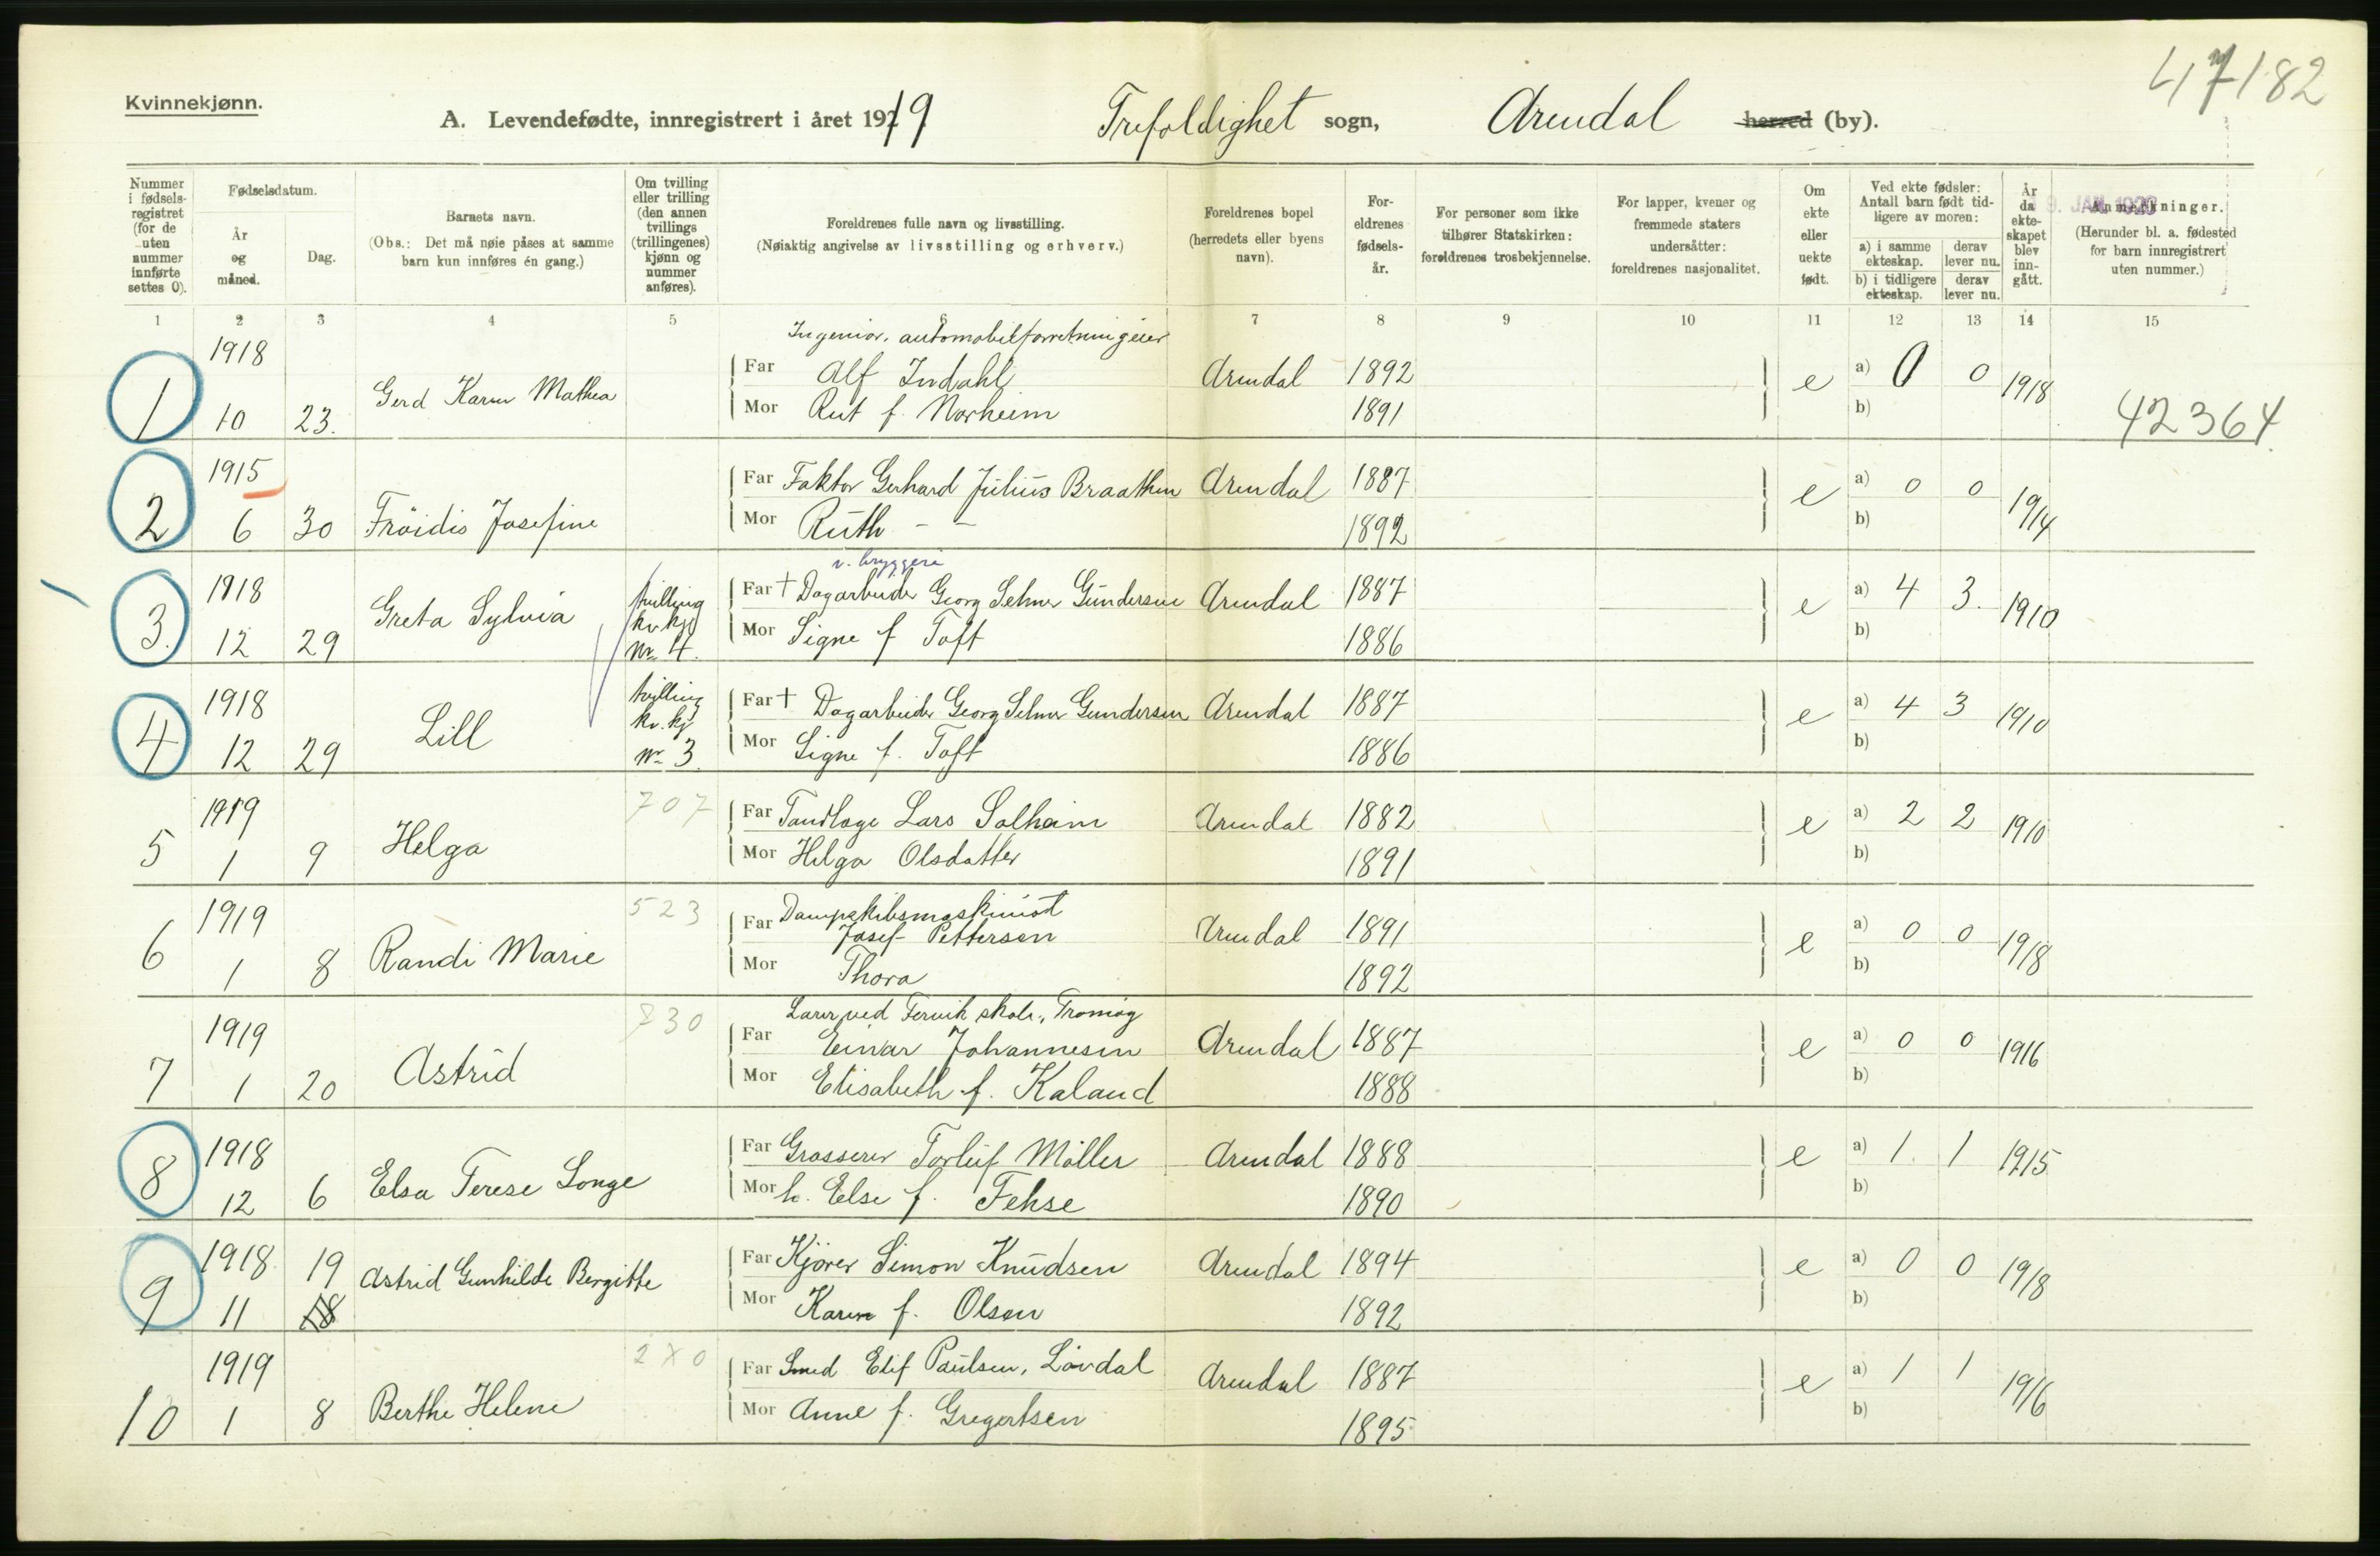 47182
Kvinnekjønn.
A. Levendefødte, innregistrert i året 1919 Trefoldighet sogn, Arendal herred (by).
Nummer i fødselsregistret (for de uten nummer innførte settes 0).
Fødselsdatum.
År og måned.
Dag.
Barnets navn.
(Obs.: Det må nøie påses at samme barn kun innføres én gang.)
Om tvilling eller trilling (den annen tvillings (trillingenes) kjønn og nummer anføres).
Foreldrenes fulle navn og livsstilling.
(Nøiaktig angivelse av livsstilling og erhverv.)
Foreldrenes bopel (herredets eller byens navn).
Foreldrenes fødselsår.
For personer som ikke tilhører Statskirken: foreldrenes trosbekjennelse.
For lapper, kvener og fremmede staters undersåtter: foreldrenes nasjonalitet.
Om ekte eller uekte født.
Ved ekte fødsler: Antall barn født tidligere av moren:
a) i samme ekteskap. derav lever nu.
b) i tidligere ekteskap. derav lever nu.
År da ekteskapet blev inngått.
9. JAN. 1920
Anmerkninger.
(Herunder bl. a. fødested for barn innregistrert uten nummer.)
1 2 3 4 5 6 7 8 9 10 11 12 13 14 15
1918 Ingeniør, automobilforretningeier
1 10 23. Gerd Karen Mathea Far Alf Indahl Arendal 1892 e a) 0 0 1918
Mor Rut f. Norheim 1891 b) 42364
1915 Far Faktor Gerhard Julius Braathen Arendal 1887 e a) 0 0 1914
2 6 30 Fröidis Josefine Mor Ruth - - 1892 b)
v. bryggeri
1918 Greta Sylvia tvilling kv. kj Nr 4. Far † Dagarbeider Georg Selmer Gundersen Arendal 1887 e a) 4 3. 1910
3. 12 29 Mor Signe f Toft 1886 b)
1918 Lill tvilling kv. kj Nr 3. Far † Dagarbeider Georg Selmer Gundersen Arendal 1887 e a) 4 3 1910
4 12 29 Mor Signe f. Toft 1886 b)
1919 707 Far Tandlæge Lars Solheim Arendal 1882 e a) 2 2 1910
5 1 9 Helga Mor Helga Olsdatter 1891 b)
1919 523 Far Dampskibsmaskinist
Josef Pettersen Arendal 1891 e a) 0 0 1918
6 1 8 Randi Marie Mor Thora 1892 b)
Lærer ved Fervik skole, Tromøy
1919 730 Far Einar Johannesen Arendal 1887 e a) 0 0 1916
7 1 20 Astrid Mor Elisabeth f. Kaland 1888 b)
1918 Far Grosserer Torleif Møller Arendal 1888 e a) 1. 1 1915
8 12 6 Elsa Terese Longe Mor h. Else f. Fehse 1890 b)
1918 19 Far Kjører Simon Knudsen Arendal 1894 e a) 0 0 1918
9 11 18 Astrid Gunhilde Bergitte Mor Karen f. Olsen 1892 b)
1919 Far Smed Elif Paulsen, Løvdal Arendal 1887 e a) 1 1 1916
10 1 8 Berthe Helene Mor Anne f. Gregertsen 1895 b)